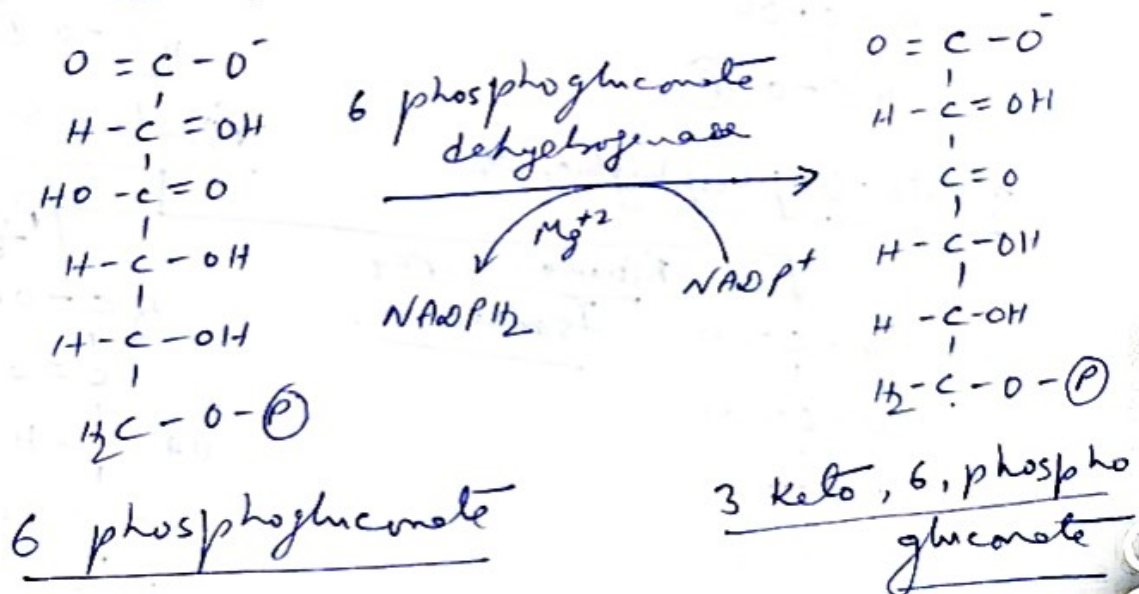 O = C - O⁻
H - C = OH
HO - C = O
H - C - OH
H - C - OH
H₂C - O - Ⓟ
6 phosphogluconate
6 phosphogluconate
dehydrogenase
Mg⁺²
NADPH₂
NADP⁺
O = C - O⁻
H - C = OH
C = O
H - C - OH
H - C - OH
H₂ - C - O - Ⓟ
3 Keto, 6, phospho
gluconate